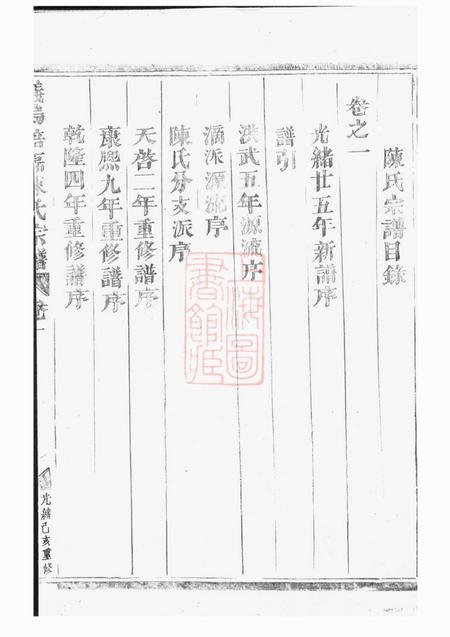 陳氏宗譜目錄
卷之一
光緒廿五年新譜序
譜引
洪武五年源流序
滴派源流序
陳氏分支派序
天啓二年重修譜序
康熙九年重修譜序
乾隆四年重修譜序
陳氏宗譜
卷一
光緒己亥重修
上海圖書館藏